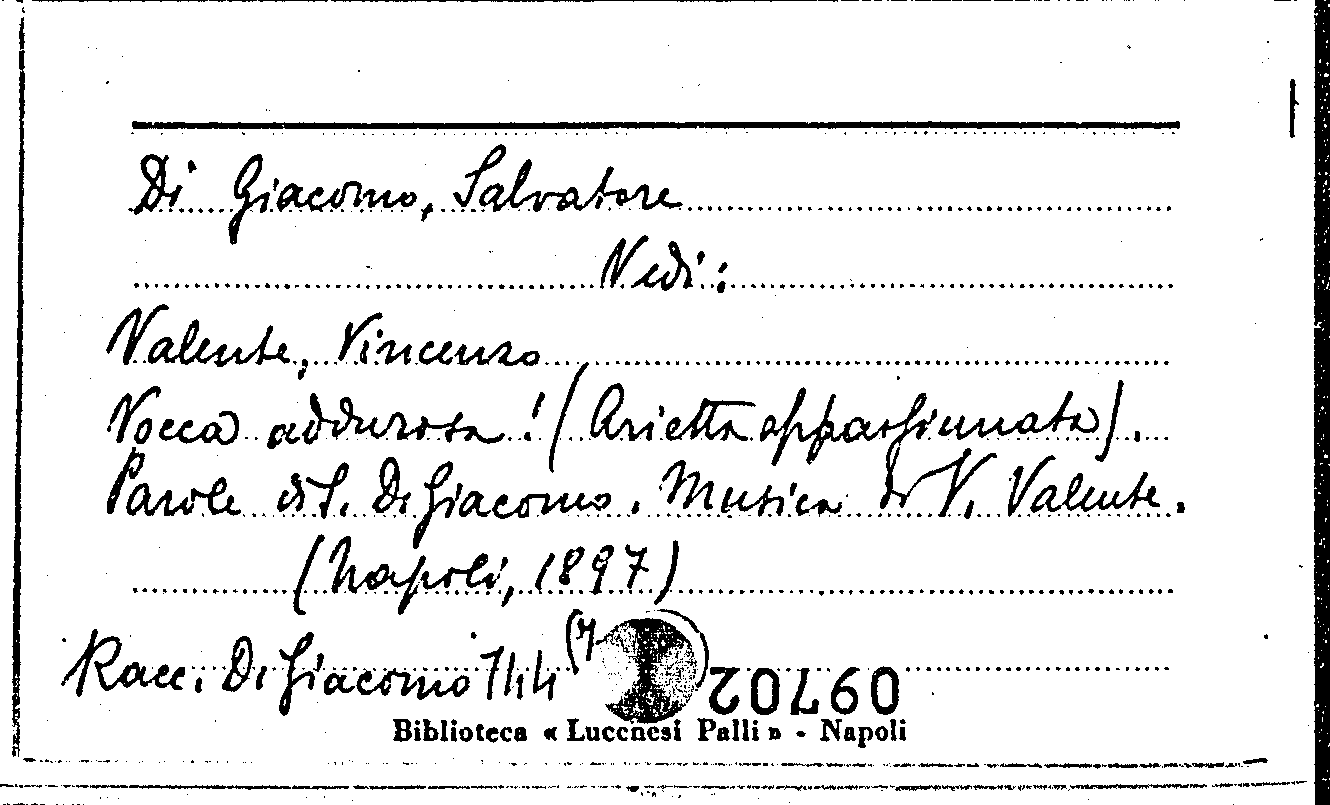 Di Giacomo, Salvatore
Vedi:
Valente, Vincenzo
Vocca addurosa! (Arietta appassiunata).
Parole di S. Di Giacomo. Musica di V. Valente.
(Napoli, 1897)
Racc. Di Giacomo 744 (7
09702
Biblioteca « Lucchesi Palli » - Napoli